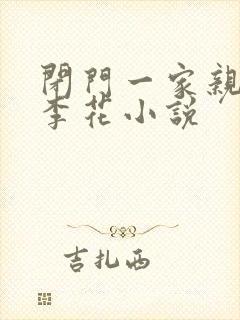 閉門一家親
李花小說
吉扎西